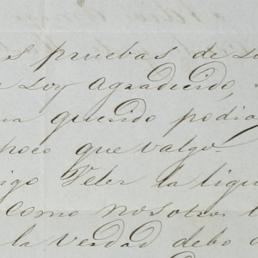 es pruebas de su
soy agradecido,
querido podia
poco que valgo.
igo Feler la ligu
como nosotros
la verdad debo